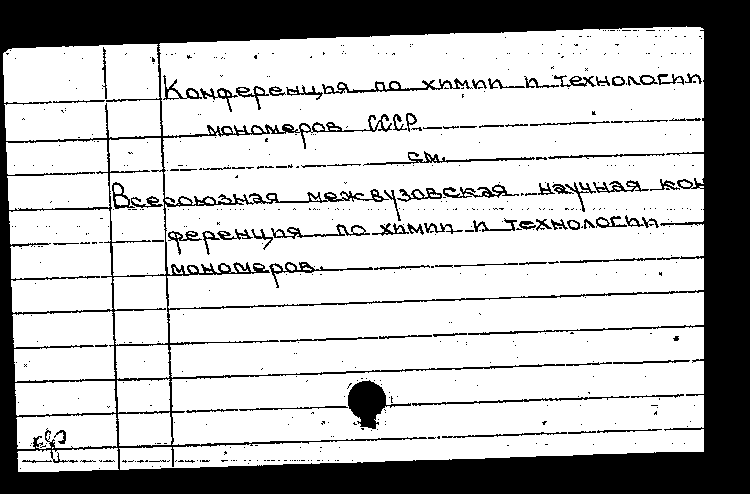 Конференция по химии и технологии
мономеров СССР
см.
Всесоюзная межвузовская научная кон
ференция по химии и технологии
мономеров.